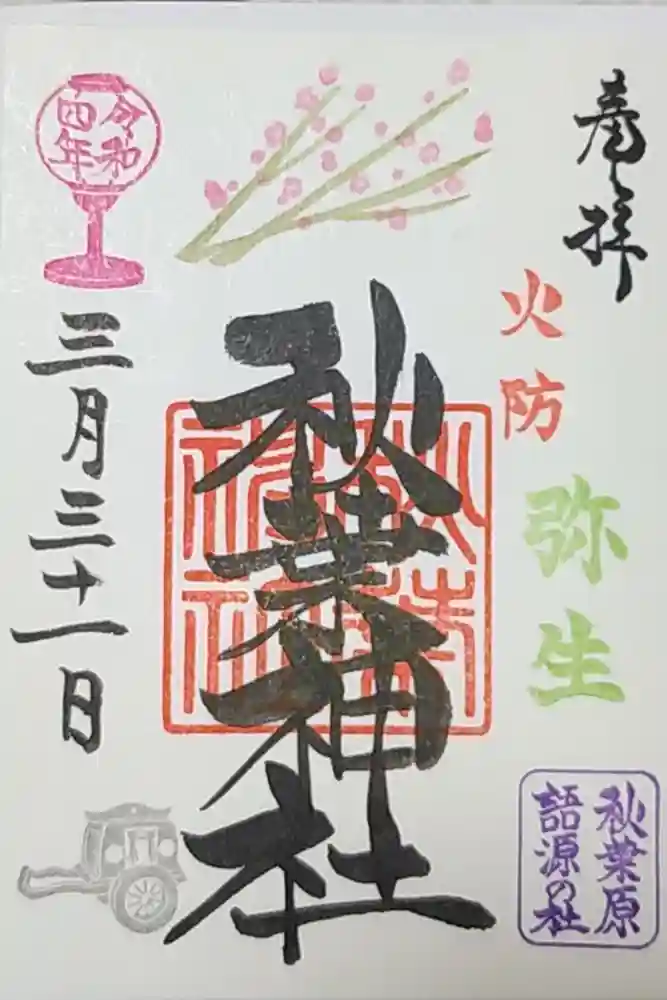 奉拝
火防
弥生
秋葉原
語源の社
秋葉神社
秋葉
神社
令和
四年
三月三十一日